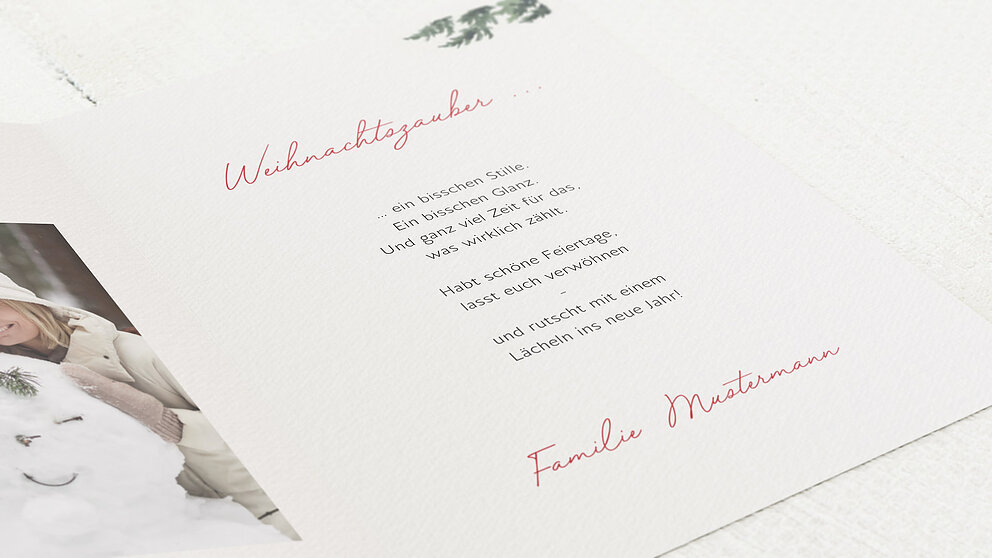 Weihnachtszauber ...
... ein bisschen Stille.
Ein bisschen Glanz.
Und ganz viel Zeit für das,
was wirklich zählt.
Habt schöne Feiertage,
lasst euch verwöhnen
–
und rutscht mit einem
Lächeln ins neue Jahr!
Familie Mustermann